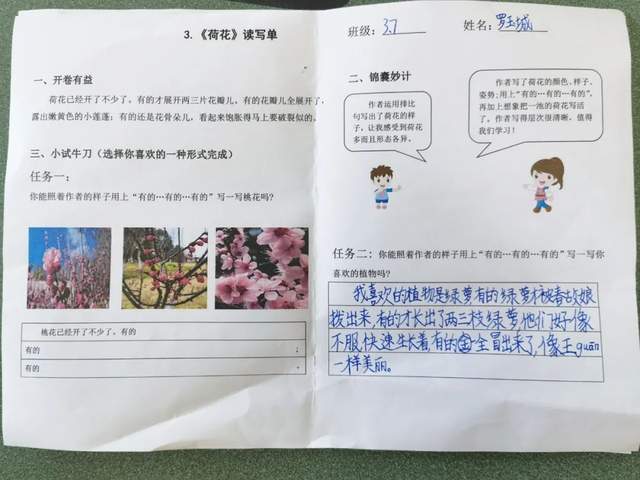 3.《荷花》读写单
班级: 3.7 姓名: 罗玉城
一、开卷有益
荷花已经开了不少了。有的才展开两三片花瓣儿。有的花瓣儿全展开了，
露出嫩黄色的小莲蓬；有的还是花骨朵儿，看起来饱胀得马上要破裂似的。
二、锦囊妙计
作者运用排比
句写出了荷花的样
子，让我感受到荷花
多而且形态各异。
作者写了荷花的颜色、样子、
姿势；用上“有的…有的…有的”，
再加上想象把一池的荷花写活
了。作者写得层次很清晰，值得
我们学习！
三、小试牛刀（选择你喜欢的一种形式完成）
任务一：
你能照着作者的样子用上“有的…有的…有的”写一写桃花吗?
桃花已经开了不少了。有的
有的 ；
有的 。
任务二：你能照着作者的样子用上“有的…有的…有的”写一写你
喜欢的植物吗?
我喜欢的植物是绿萝有的绿萝才被春姑娘
找出来,有的才长出了两三枝绿萝他们好像
不服,快速生长着,有的全冒出来了,像王guān
一样美丽。